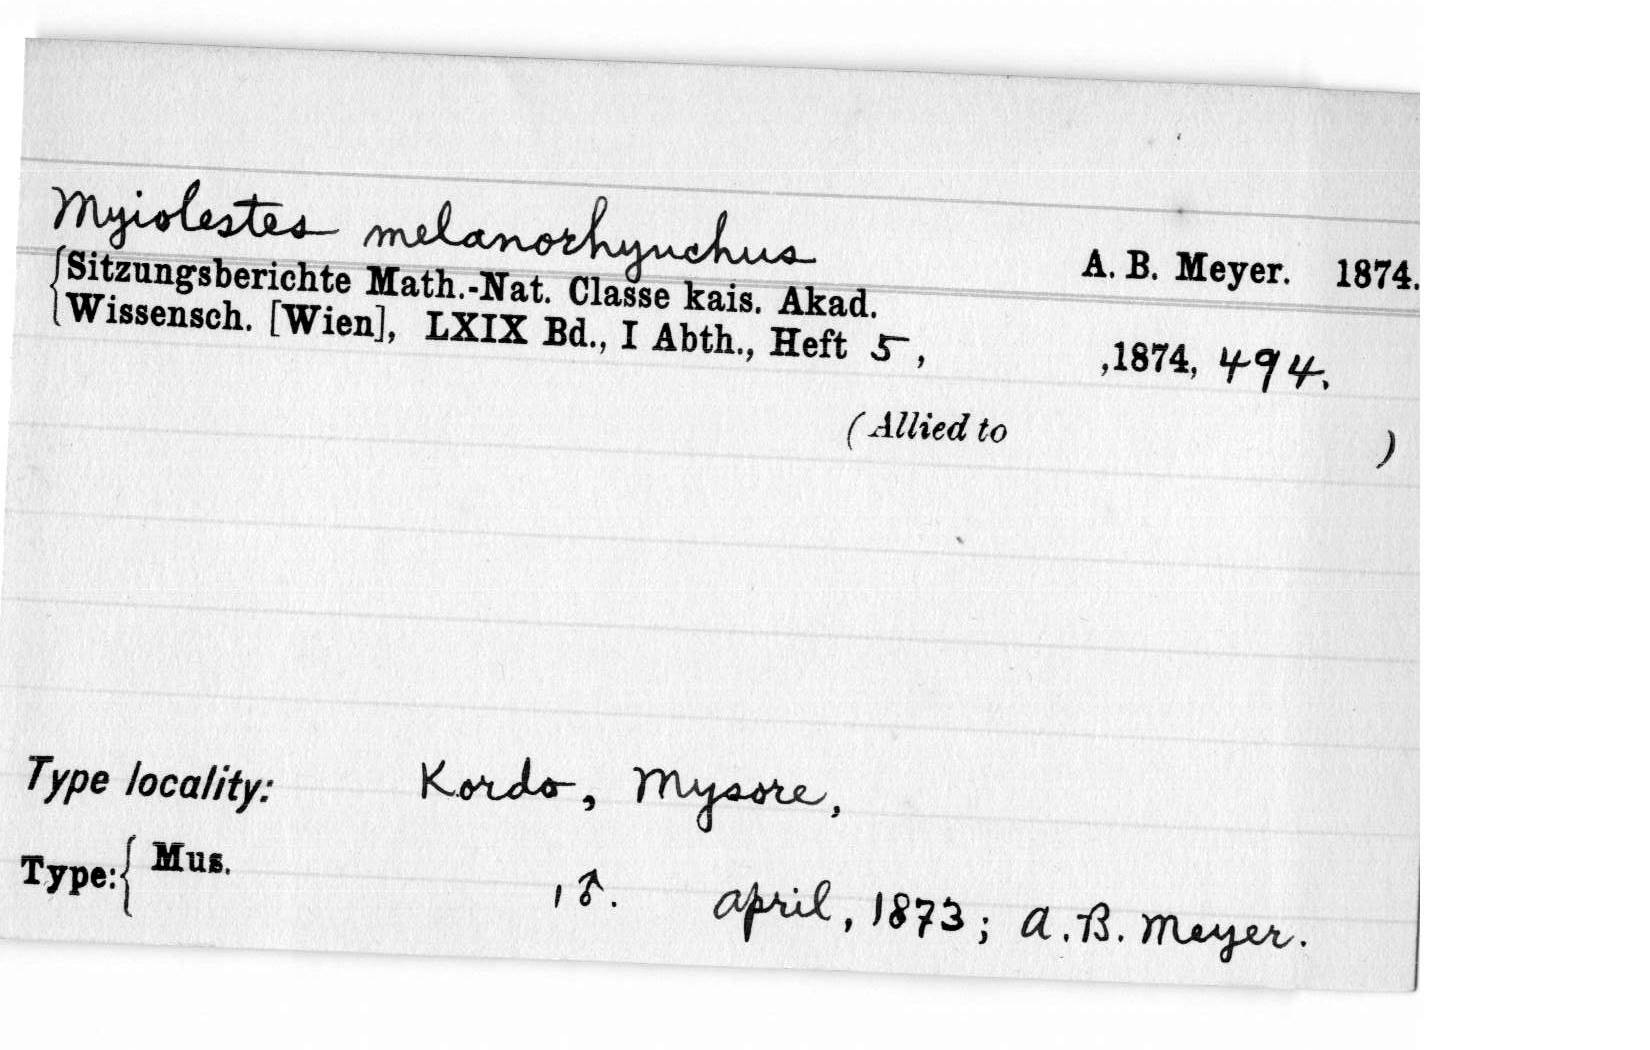 Myiolestes melanorhynchus A. B. Meyer. 1874.
Sitzungsberichte Math.-Nat. Classe kais. Akad.
Wissensch. [Wien], LXIX Bd., I Abth., Heft 5, ,1874, 494.
(Allied to )
Type locality: Kordo, Mysore,
Type: Mus. 1 ♂. April, 1873; A. B. Meyer.